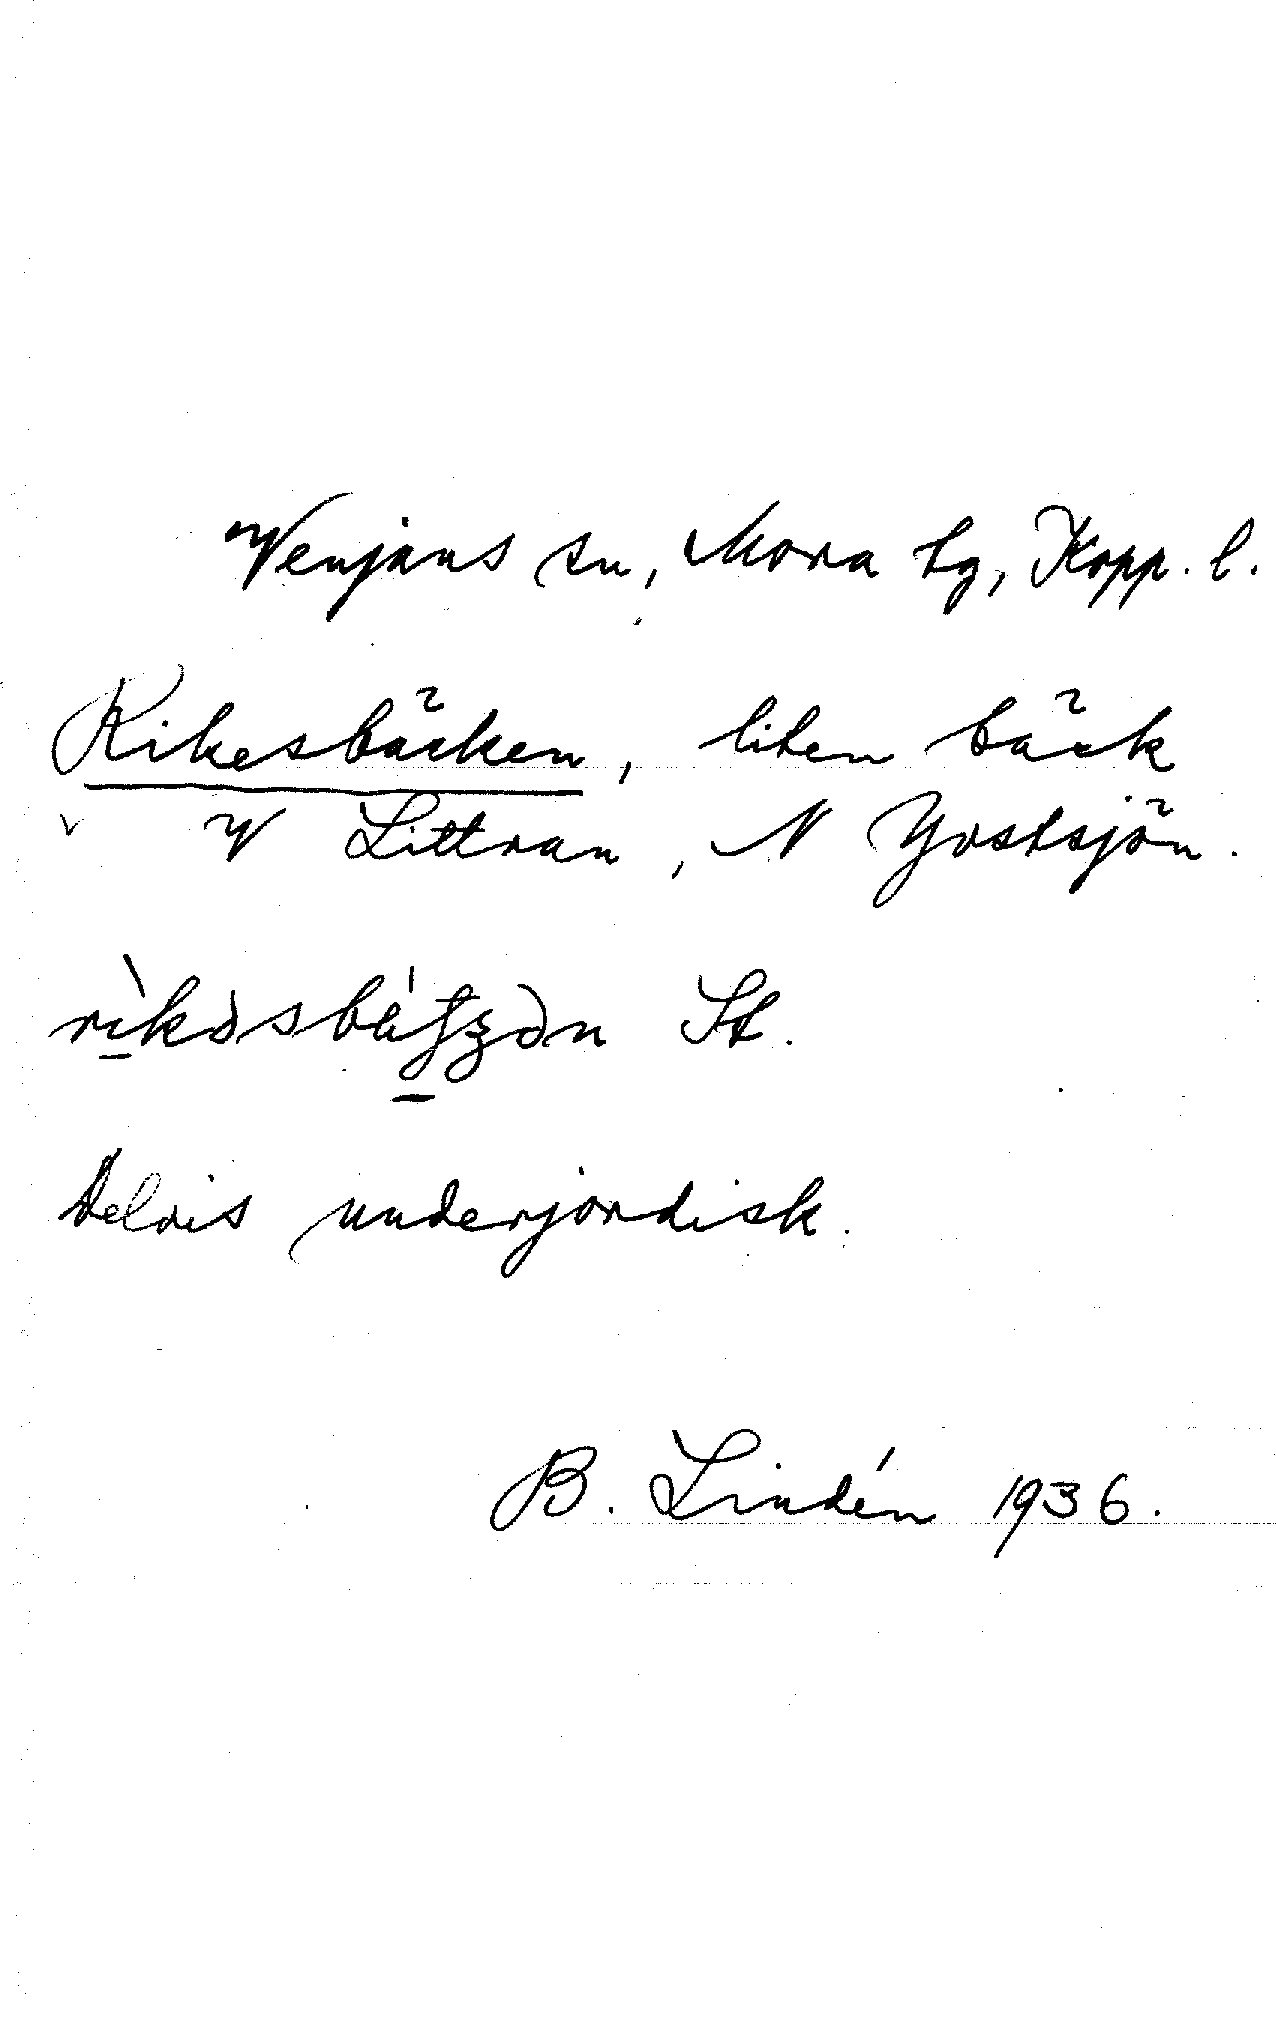 Venjans sn, Mora tg, Kopp. l.
Rikesbäcken, liten bäck
V Littran, N Yostsjön.
St.
Delvis underjordisk.
B. Lindén 1936.